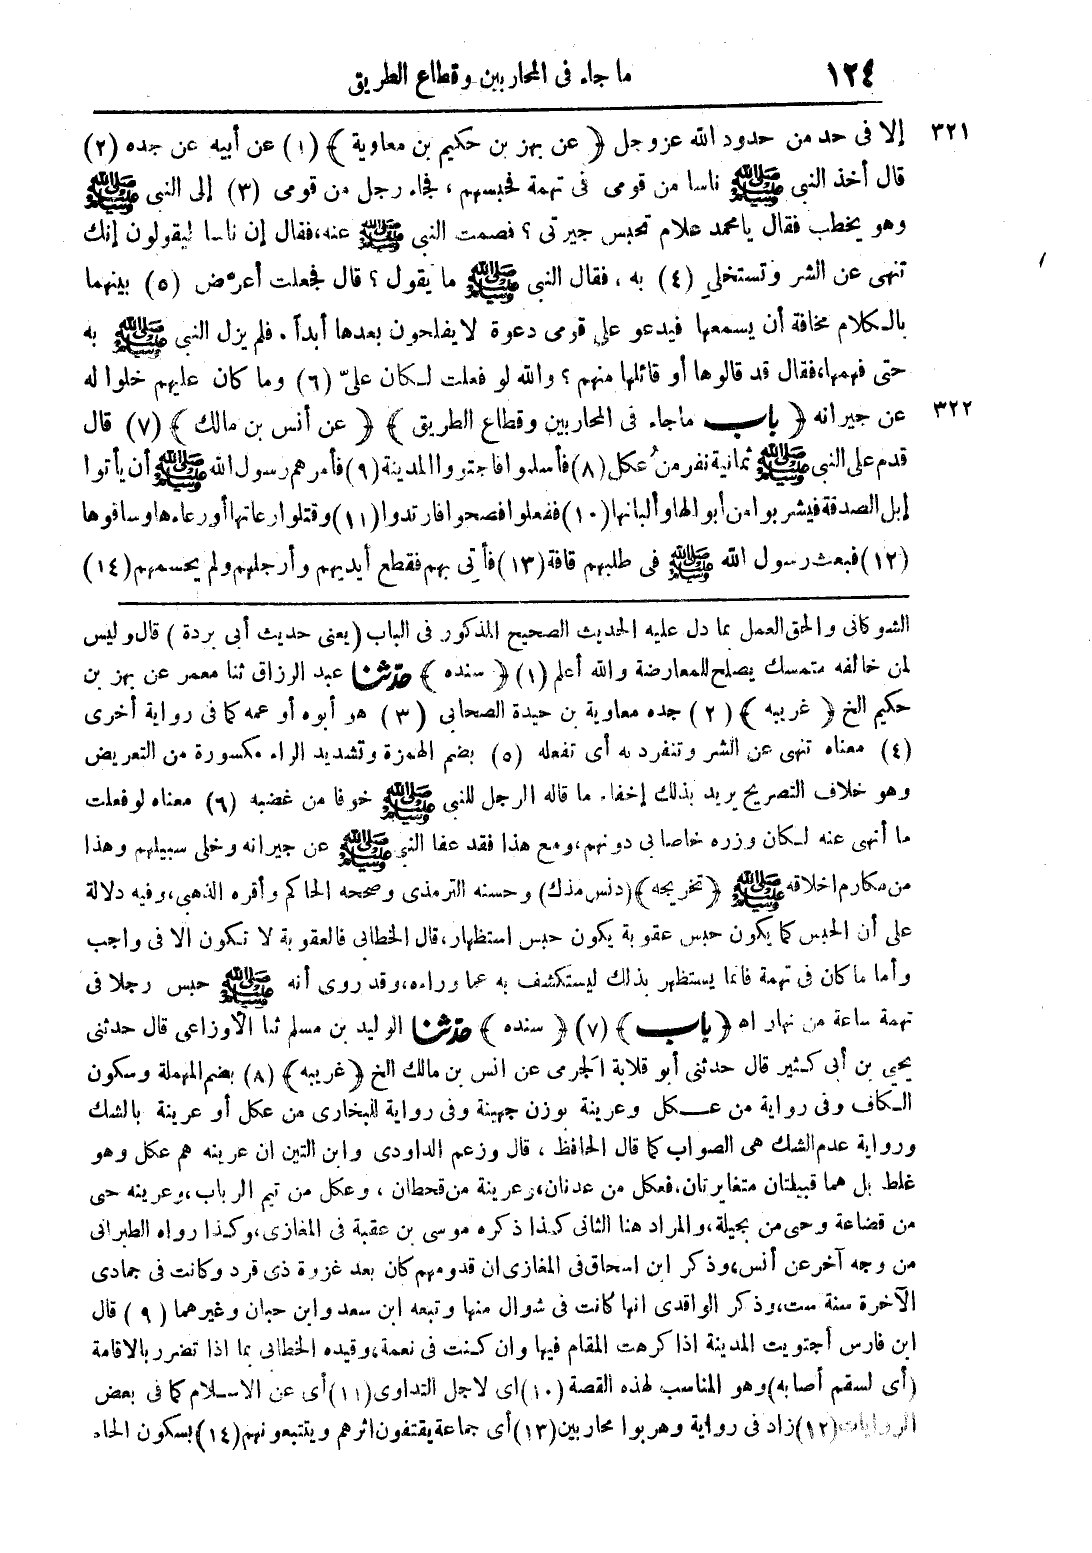 ١٢٤ ما جاء فى المحاربين وقطاع الطريق
٣٢١ إلا فى حد من حدود الله عز وجل ﴿ عن بهز بن حكيم بن معاوية ﴾ (١) عن أبيه عن جده (٢)
قال أخذ النبى ﷺ ناسا من قومى فى تهمة فحبسهم ، فجاء رجل من قومى (٣) إلى النبى ﷺ
وهو يخطب فقال يا محمد علام تحبس جيرتى ؟ فصمت النبى ﷺ عنه،فقال إن ناسا ليقولون إنك
تنهى عن الشر وتستخلى (٤) به ، فقال النبى ﷺ ما يقول ؟ قال فجعلت أعرّض (٥) بينهما
بالكلام مخافة أن يسمعها فيدعو على قومى دعوة لا يفلحون بعدها أبداً . فلم يزل النبى ﷺ به
حتى فهمها،فقال قد قالوها أو قائلها منهم ؟ والله لو فعلت لكان علىّ (٦) وما كان عليهم خلوا له
٣٢٢ عن جيرانه ﴿ باب ما جاء فى المحاربين وقطاع الطريق ﴾ ﴿ عن أنس بن مالك ﴾ (٧) قال
قدم على النبى ﷺ ثمانية نفر من عُكل (٨) فأسلموا فاجتووا المدينة (٩) فأمرهم رسول الله ﷺ أن يأتوا
إبل الصدقة فيشربوا من أبوالها وألبانها (١٠) ففعلوا فصحوا فارتدوا (١١) وقتلوا رعاتها أو رعاءها وساقوها
(١٢) فبعث رسول الله ﷺ فى طلبهم قافة (١٣) فأتى بهم فقطع أيديهم وأرجلهم ولم يحسمهم (١٤)
الشوكانى والحق العمل بما دل عليه الحديث الصحيح المذكور فى الباب (يعنى حديث أبى بردة ) قال وليس
لمن خالفه متمسك يصلح للمعارضة والله أعلم (١) ﴿ سنده ﴾ حدثنا عبد الرزاق ثنا معمر عن بهز بن
حكيم الخ ﴿ غريبه ﴾ (٢) جده معاوية بن حيدة الصحابى (٣) هو أبوه أو عمه كما فى رواية أخرى
(٤) معناه تنهى عن الشر وتنفرد به أى تفعله (٥) بضم الهمزة وتشديد الراء مكسورة من التعريض
وهو خلاف التصريح يريد بذلك إخفاء ما قاله الرجل للنبى ﷺ خوفا من غضبه (٦) معناه لو فعلت
ما أنهى عنه لكان وزره خاصا بى دونهم،ومع هذا فقد عفا النبى ﷺ عن جيرانه وخلى سبيلهم وهذا
من مكارم اخلاقه ﷺ ﴿تخريجه﴾ (د نس مذ ك) وحسنه الترمذى وصححه الحاكم وأقره الذهبى،وفيه دلالة
على أن الحبس كما يكون حبس عقوبة يكون حبس استظهار،قال الخطابى فالعقوبة لا تكون الا فى واجب
وأما ما كان فى تهمة فانما يستظهر بذلك ليستكشف به عما وراءه،وقد روى أنه ﷺ حبس رجلا فى
تهمة ساعة من نهار اه ﴿ باب ﴾ (٧) ﴿ سنده ﴾ حدثنا الوليد بن مسلم ثنا الأوزاعى قال حدثنى
يحيى بن أبى كثير قال حدثنى أبو قلابة الجرمى عن انس بن مالك الخ ﴿غريبه﴾ (٨) بضم المهملة وسكون
الكاف وفى رواية من عكل وعرينة بوزن جهينة وفى رواية للبخارى من عكل أو عرينة بالشك
ورواية عدم الشك هى الصواب كما قال الحافظ ، قال وزعم الداودى وابن التين ان عرينه هم عكل وهو
غلط بل هما قبيلتان متغايرتان،فعكل من عدنان،وعرينة من قحطان ، وعكل من تيم الرباب،وعرينه حى
من قضاعة وحى من بجيلة،والمراد هنا الثانى كذا ذكره موسى بن عقبة فى المغازى،وكذا رواه الطبرانى
من وجه آخر عن أنس،وذكر ابن اسحاق فى المغازى ان قدومهم كان بعد غزوة ذى قرد وكانت فى جمادى
الآخرة سنة ست،وذكر الواقدى انها كانت فى شوال منها وتبعه ابن سعد وابن حبان وغيرهما (٩) قال
ابن فارس أجتويت المدينة اذا كرهت المقام فيها وان كنت فى نعمة،وقيده الخطابى بما اذا تضرر بالاقامة
(أى لسقم أصابه) وهو المناسب لهذه القصة (١٠) اى لاجل التداوى (١١) أى عن الاسلام كما فى بعض
الروايات (١٢) زاد فى رواية وهربوا محاربين (١٣) أى جماعة يقتفون اثرهم ويتتبعونهم (١٤) بسكون الحاء